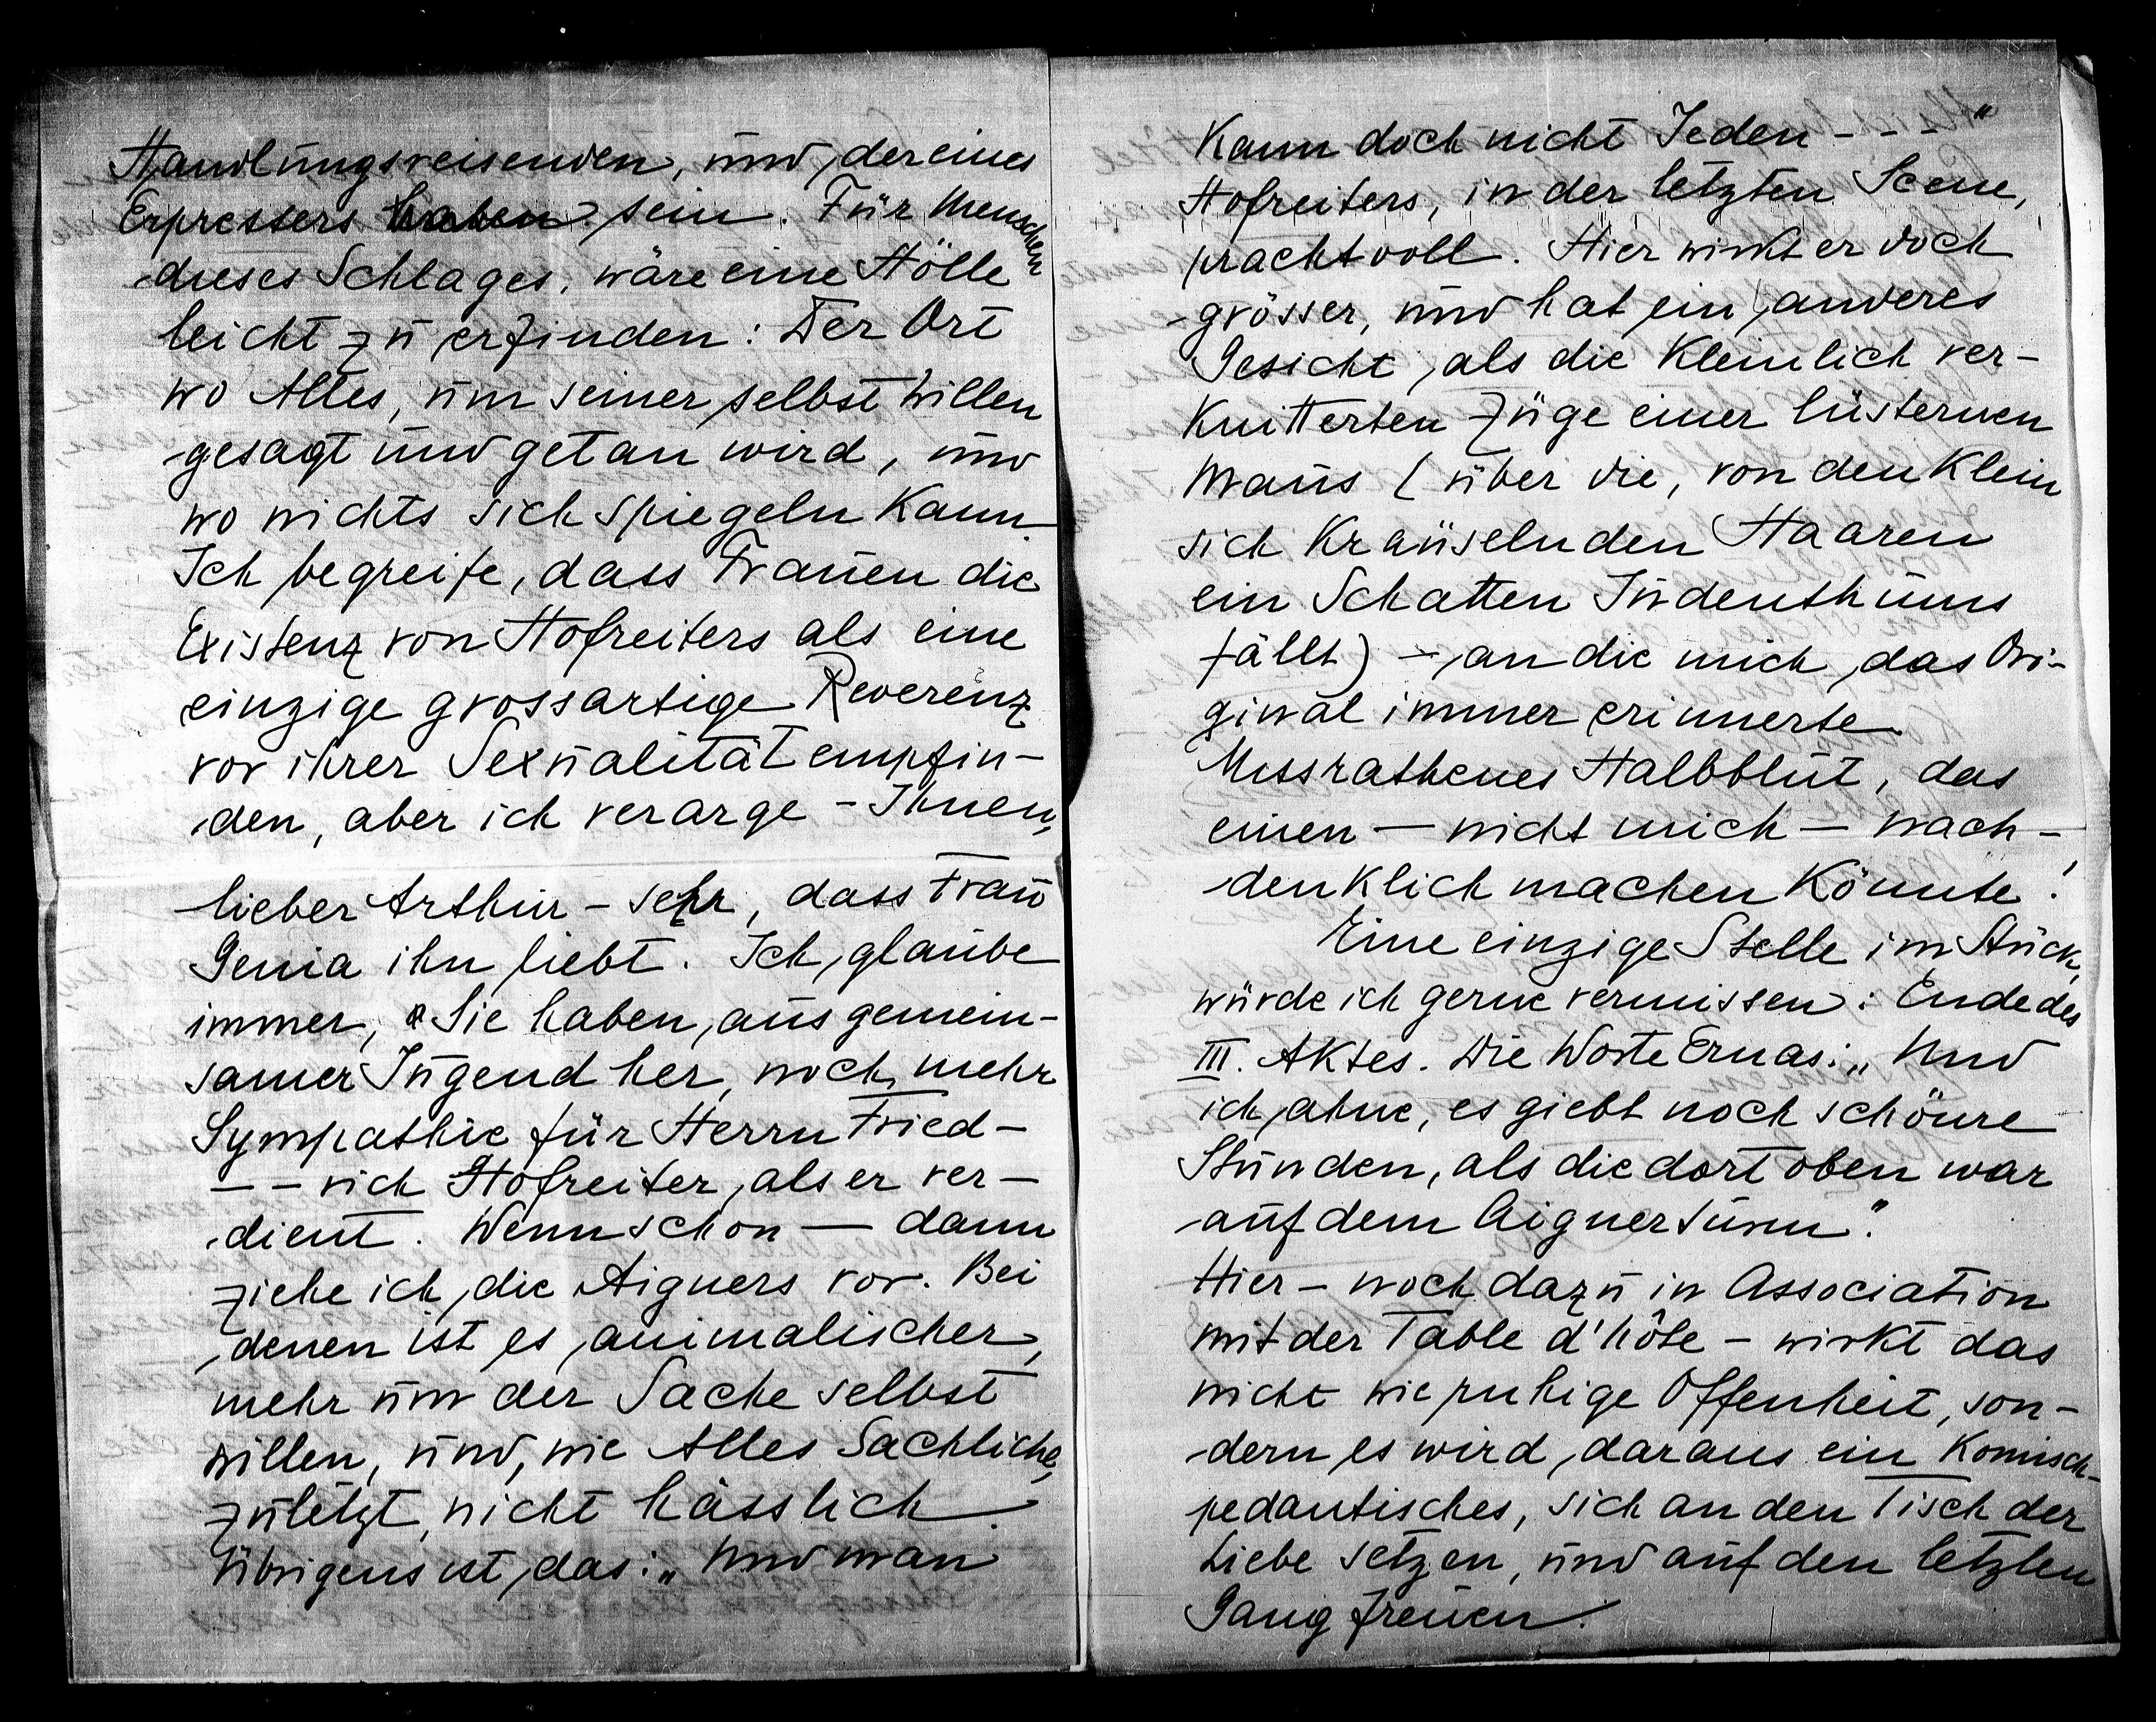 Handlungsreisenden, und der eines
Erpressers haben sein. Für Menschen
dieses Schlages, wäre eine Hölle
leicht zu erfinden: Der Ort
wo Alles, um seiner selbst willen
gesagt und getan wird, und
wo nichts sich spiegeln kann.
Ich begreife, dass Frauen die
Existenz von Hofreiters als eine
einzige grossartige Reverenz
vor ihrer Sexualität empfin-
den, aber ich verarge – Ihnen,
lieber Arthur – sehr, dass Frau
Genia ihn liebt. Ich glaube
immer, Sie haben, aus gemein-
samer Jugend her, noch mehr
Sympathie für Herrn Fried-
-- rich Hofreiter, als er ver-
dient. Wennschon — dann
ziehe ich, die Aigners vor. Bei
denen ist es, animalischer,
mehr um der Sache selbst
willen, und, wie Alles Sachliche,
zuletzt, nicht hässlich.
Übrigens ist, das: „Und man
kann doch nicht Jeden - - - "
Hofreiters, in der letzten Scene,
prachtvoll. Hier wirkt er doch
grösser, und hat ein, anderes
Gesicht, als die kleinlich ver-
knitterten Züge einer lüsternen
Maus (über die, von den klein
sich kräuselnden Haaren
ein Schatten Judenthums
fällt) – an die mich, das Ori-
ginal immer erinnerte.
Missrathenes Halbblut, das
einen — nicht mich — nach-
denklich machen könnte!
Eine einzige Stelle im Stück,
würde ich gerne vermissen: Ende des
III. Aktes. Die Worte Ernas: „Und
ich, ahne, es giebt noch schönre
Stunden, als die dort oben war
auf dem Aignerturm."
Hier – noch dazu in Association
mit der Table d'hôte – wirkt das
nicht wie ruhige Offenheit, son-
dern es wird, daraus ein komisch-
pedantisches, sich an den Tisch der
Liebe setzen, und auf den letzten
Gang freuen.